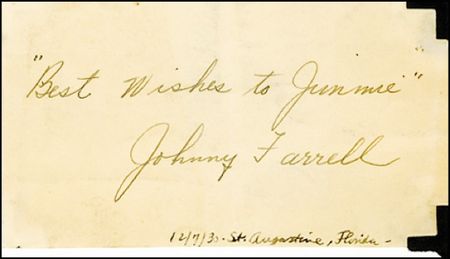 "Best Wishes to Jimmie"
Johnny Farrell
12/7/30. St. Augustine, Florida-